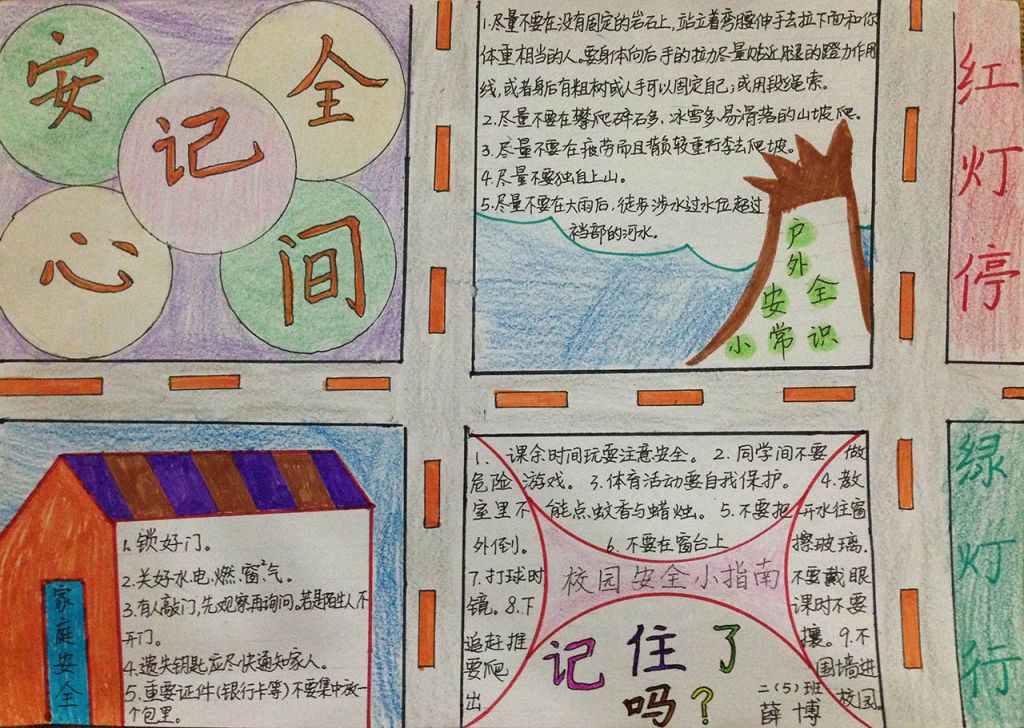 安
全
记
心
间
1.尽量不要在没有固定的岩石上,站立着弯腰伸手去拉下面和你
体重相当的人。要身体向后手的拉力尽量贴近腿的蹬力作用
线,或者身后有粗树或人手可以固定自己;或用段绳索。
2.尽量不要在攀爬碎石多、冰雪多、易滑落的山坡爬。
3.尽量不要在疲劳而且背负较重行李去爬坡。
4.尽量不要独自上山。
5.尽量不要在大雨后,徒步涉水过水位超过
裆部的河水。
户
外
安全
小常识
红
灯
停
家
庭
安
全
1.锁好门。
2.关好水、电、燃、窗、气。
3.有人敲门,先观察再询问。若是陌生人不
开门。
4.遗失钥匙应尽快通知家人。
5.重要证件(银行卡等)不要集中放一
个包里。
1. 课余时间玩要注意安全。 2. 同学间不要 做
危险 游戏。 3.体育活动要自我保护。 4.教
室里不 能点蚊香与蜡烛。 5.不要把 开水往窗
外倒。 6.不要在窗台上 擦玻璃.
7.打球时 不要戴眼
镜。8.下 课时不要
追赶推 攘。9.不
要爬 围墙进
出 校园。
校园安全小指南
记住了
吗?
二(5)班
薛博
绿
灯
行